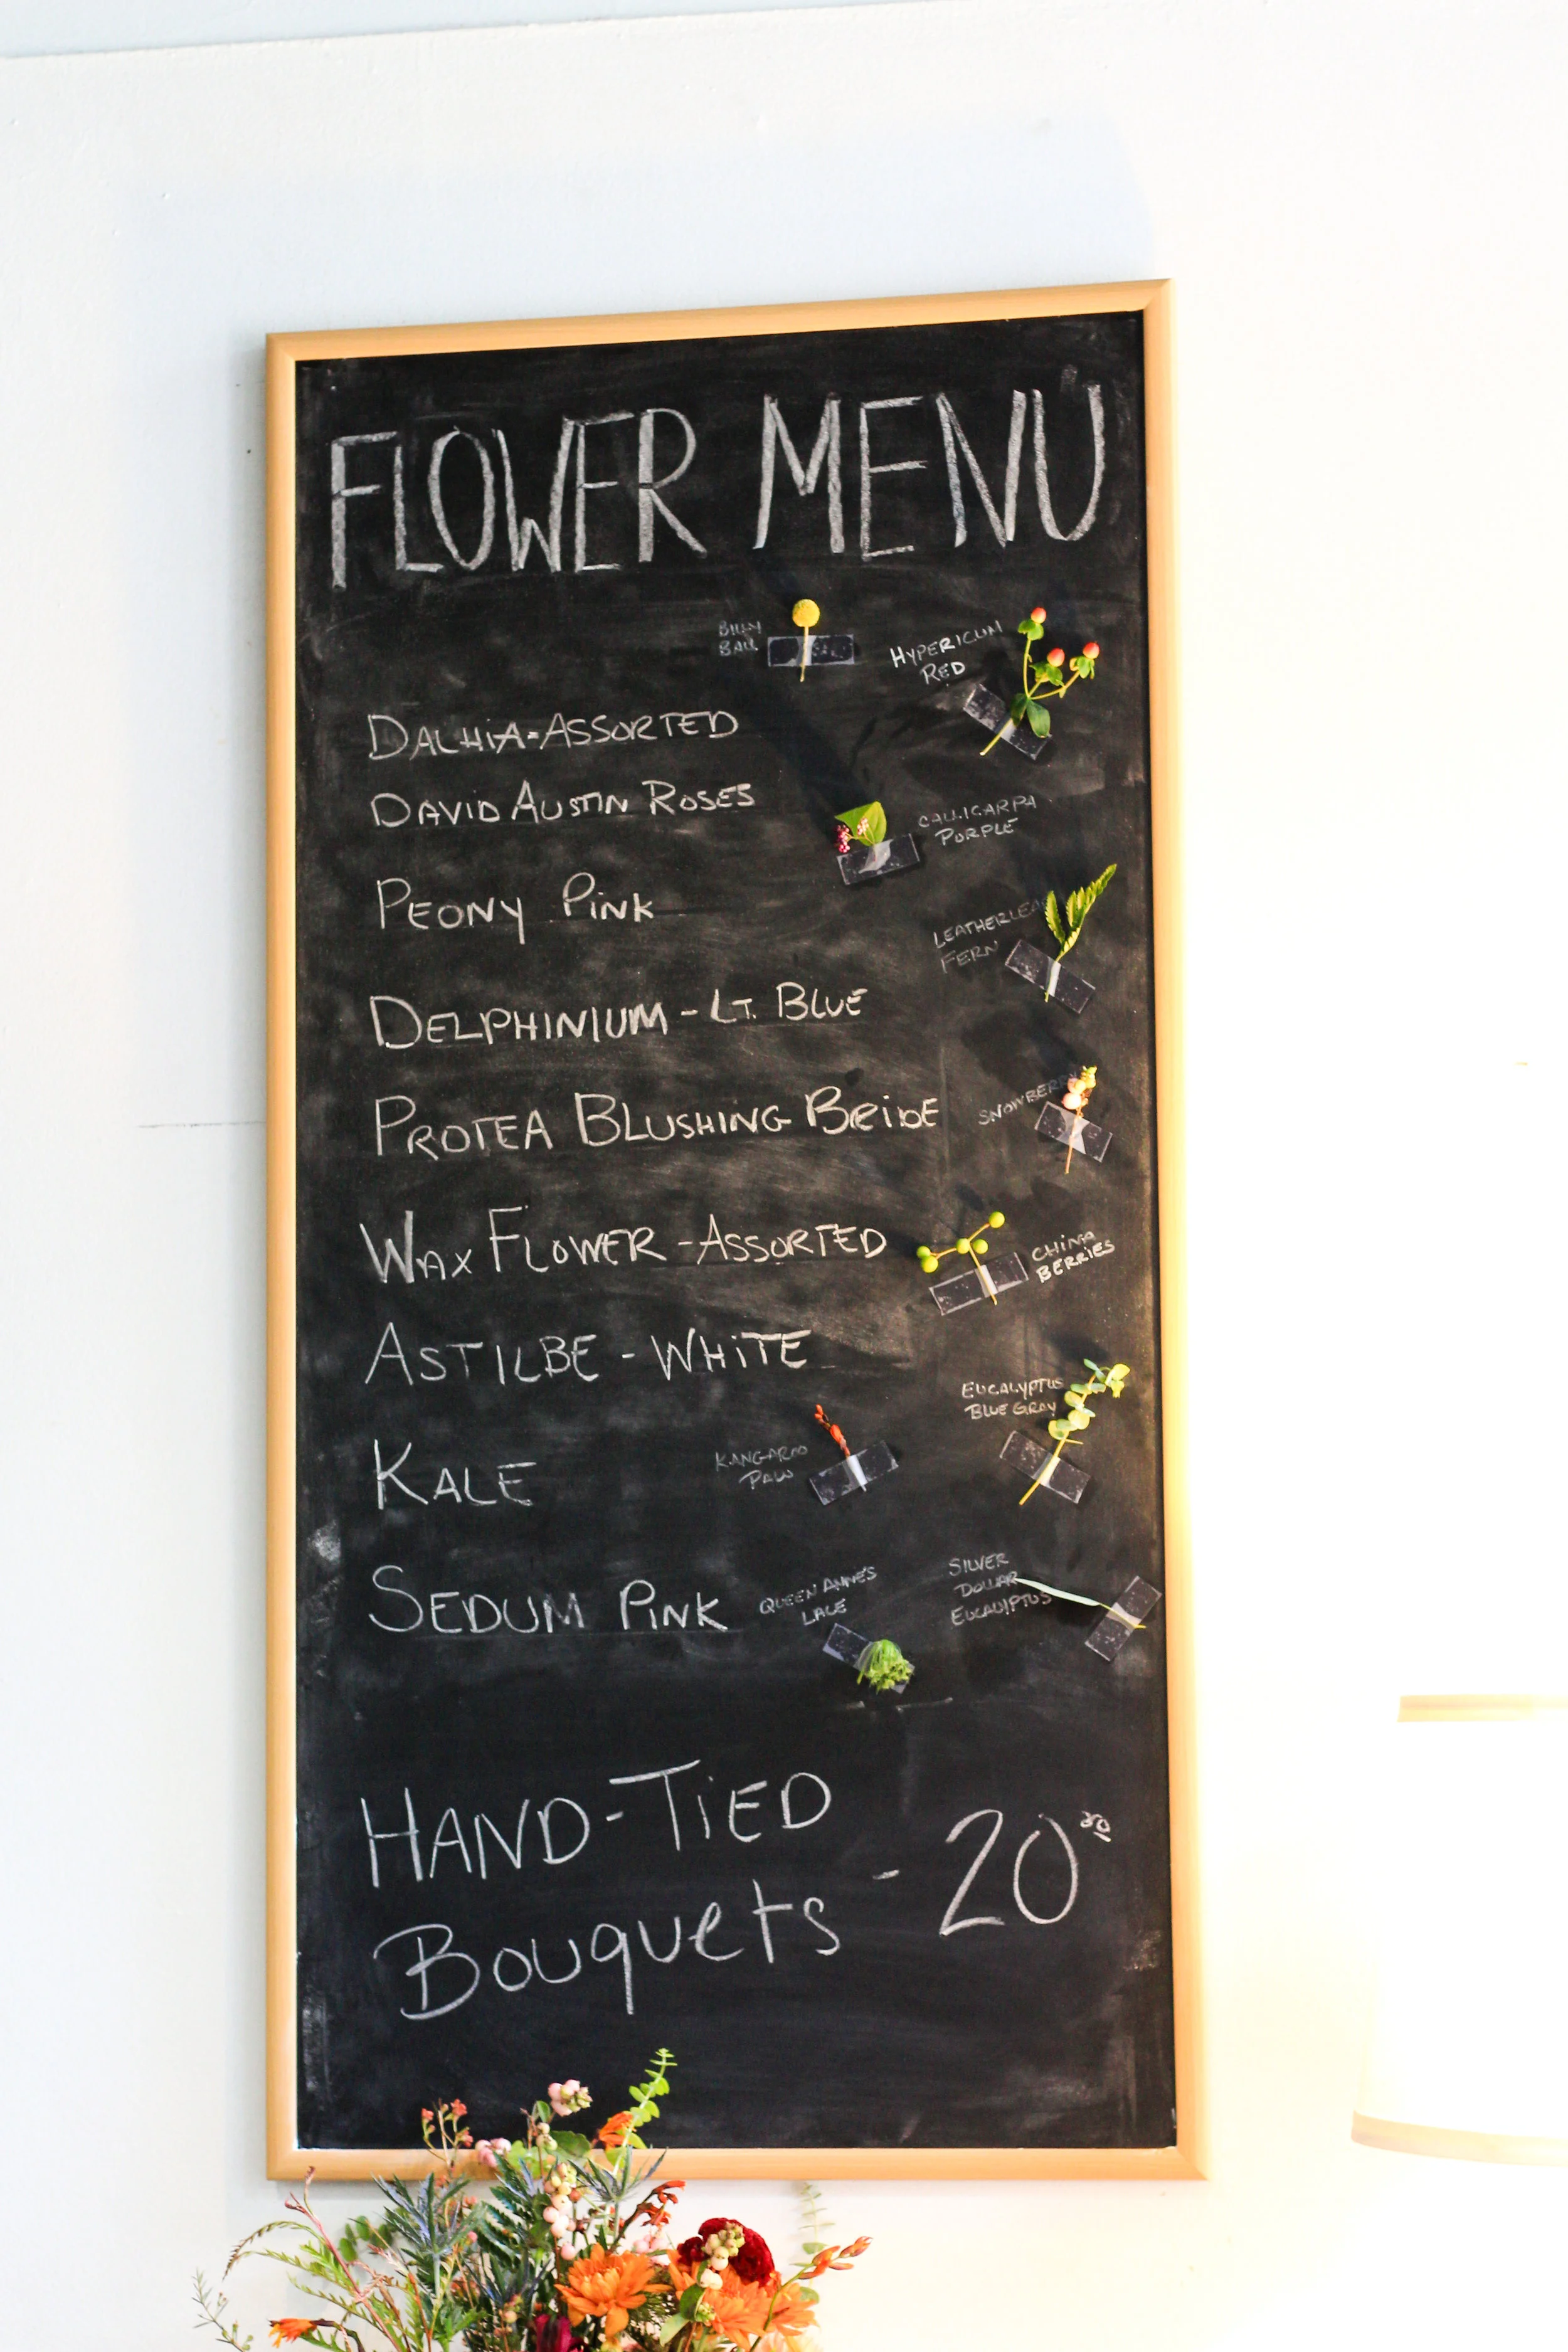 FLOWER MENU
BILLY
BALL
HYPERICUM
RED
DALHIA-ASSORTED
DAVID AUSTIN ROSES
CALLICARPA
PURPLE
PEONY PiNK
LEATHERLEAF
FERN
DELPHINIUM - LT. BLUE
PROTEA BLUSHING BRIDE
SNOWBERRY
WAX FLOWER - ASSORTED
CHINA
BERRIES
ASTILBE - WHiTE
EUCALYPTUS
BLUE GRAY
KALE
KANGAROO
PAW
SEDUM PINK
QUEEN ANNE'S
LACE
SILVER
DOLLAR
EUCALYPTUS
HAND-TiED
BOUQUETS - 20 00